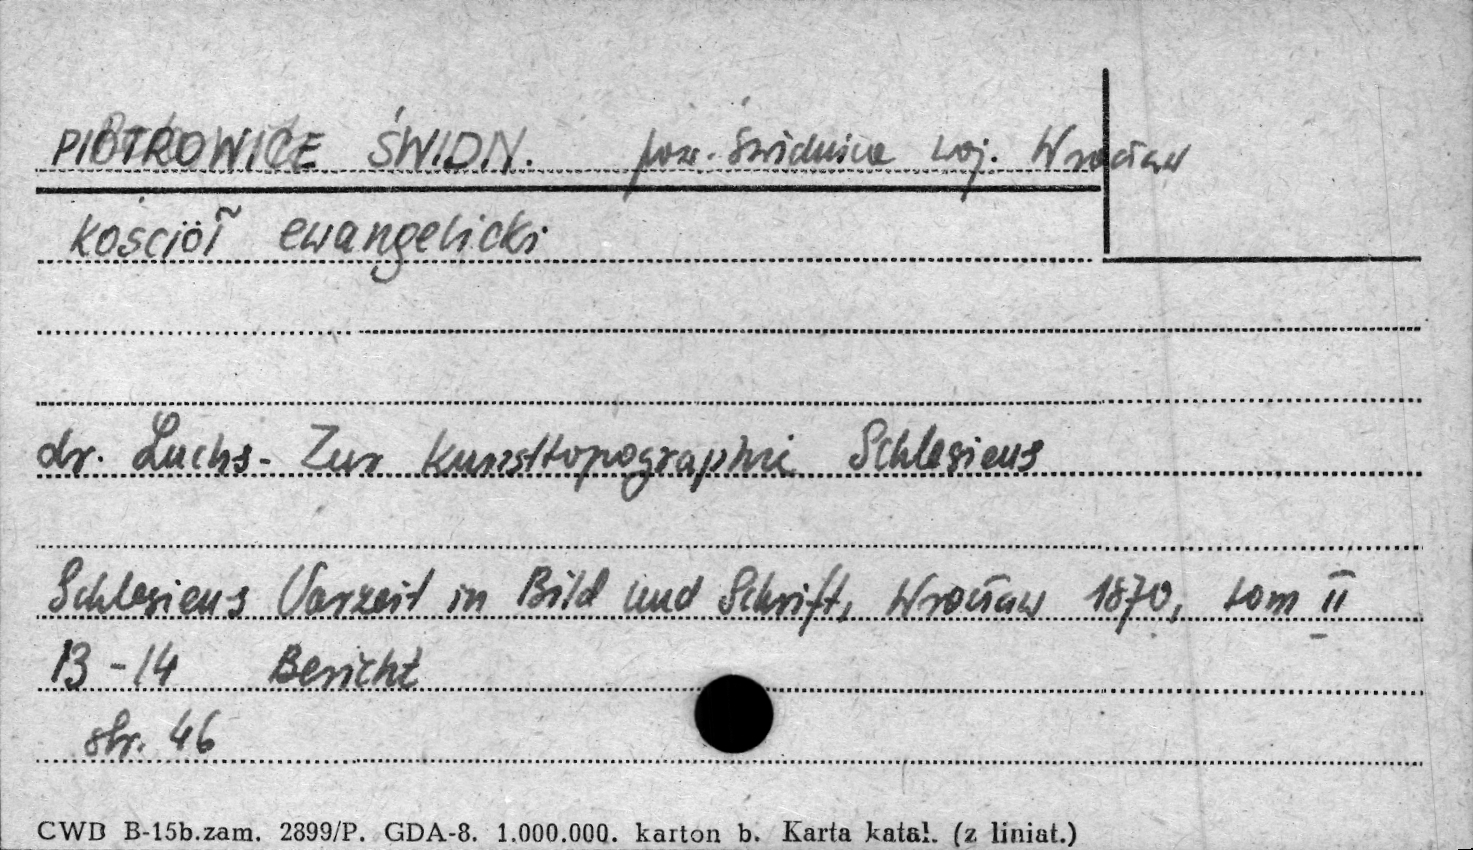 PIOTROWICE ŚWIDN. pow. Świdnica woj. Wrocław
kościół ewangelicki
dr. Luchs - Zur Kunsttopographie Schlesiens
Schlesiens Vorzeit in Bild und Schrift, Wrocław 1870, tom II
13-14 Bericht
str. 46
CWD B-15b.zam. 2899/P. GDA-8. 1.000.000. karton b. Karta katal. (z liniat.)